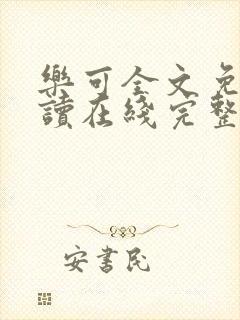 樂可全文免
讀在綫完整
安書民